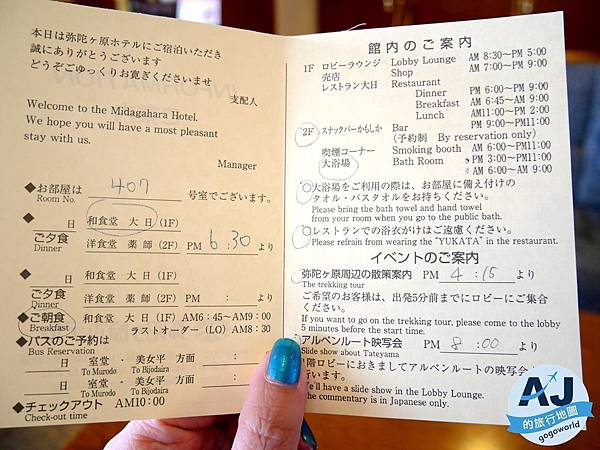 本日は弥陀ヶ原ホテルにご宿泊いただき
誠にありがとうございます
どうぞごゆっくりお寛ぎくださいませ
支配人
Welcome to the Midagahara Hotel.
We hope you will have a most pleasant
stay with us.
Manager
◆お部屋は 407 号室でございます。
Room No.
◆ 日 和食堂 大日(1F)
ご夕食 洋食堂 薬師(2F) PM 6:30 より
Dinner
◆ 日 和食堂 大日(1F)
ご夕食 洋食堂 薬師(2F) PM : より
Dinner
◆ご朝食 和食堂 大日(1F) AM6:45~AM9:00
Breakfast ラストオーダー(LO) AM8:30
◆バスのご予約は
Bus Reservation
日 室堂 ・ 美女平 方面 :
To Murodo To Bijodaira
日 室堂 ・ 美女平 方面 :
To Murodo To Bijodaira
◆チェックアウト AM10:00
Check-out time
館内のご案内
1F ロビーラウンジ Lobby Lounge AM 8:30~PM 5:00
売店 Shop AM 7:00~PM 9:00
レストラン大日 Restaurant
Dinner PM 6:00~PM 9:00
Breakfast AM 6:45~AM 9:00
Lunch AM11:00~PM 2:00
2F スナックバーかもしか Bar PM 9:00~PM11:00
(予約制 By reservation only)
喫煙コーナー Smoking booth AM 6:00~PM 9:00
大浴場 Bath Room PM 3:00~PM11:00
AM 6:00~AM 9:00
大浴場をご利用の際は、お部屋に備え付けの
タオル・バスタオルをお持ちください。
Please bring the bath towel and hand towel
from your room when you go to the public bath.
レストランでの浴衣がけはご遠慮ください。
Please refrain from wearing the "YUKATA" in the restaurant.
イベントのご案内
弥陀ヶ原周辺の散策案内 PM 4:15 より
The trekking tour
ご希望のお客様は、出発5分前までにロビーにご集合
ください。
If you want to go on the trekking tour, please come to the lobby
5 minutes before the start time.
アルペンルート映写会 PM 8:00 より
Slide show about Tateyama
階ロビーにおきましてアルペンルートの映写会
行います。
We'll have a slide show in the Lobby Lounge.
The commentary is in Japanese only.
AJ
的旅行地圖
gogoworld